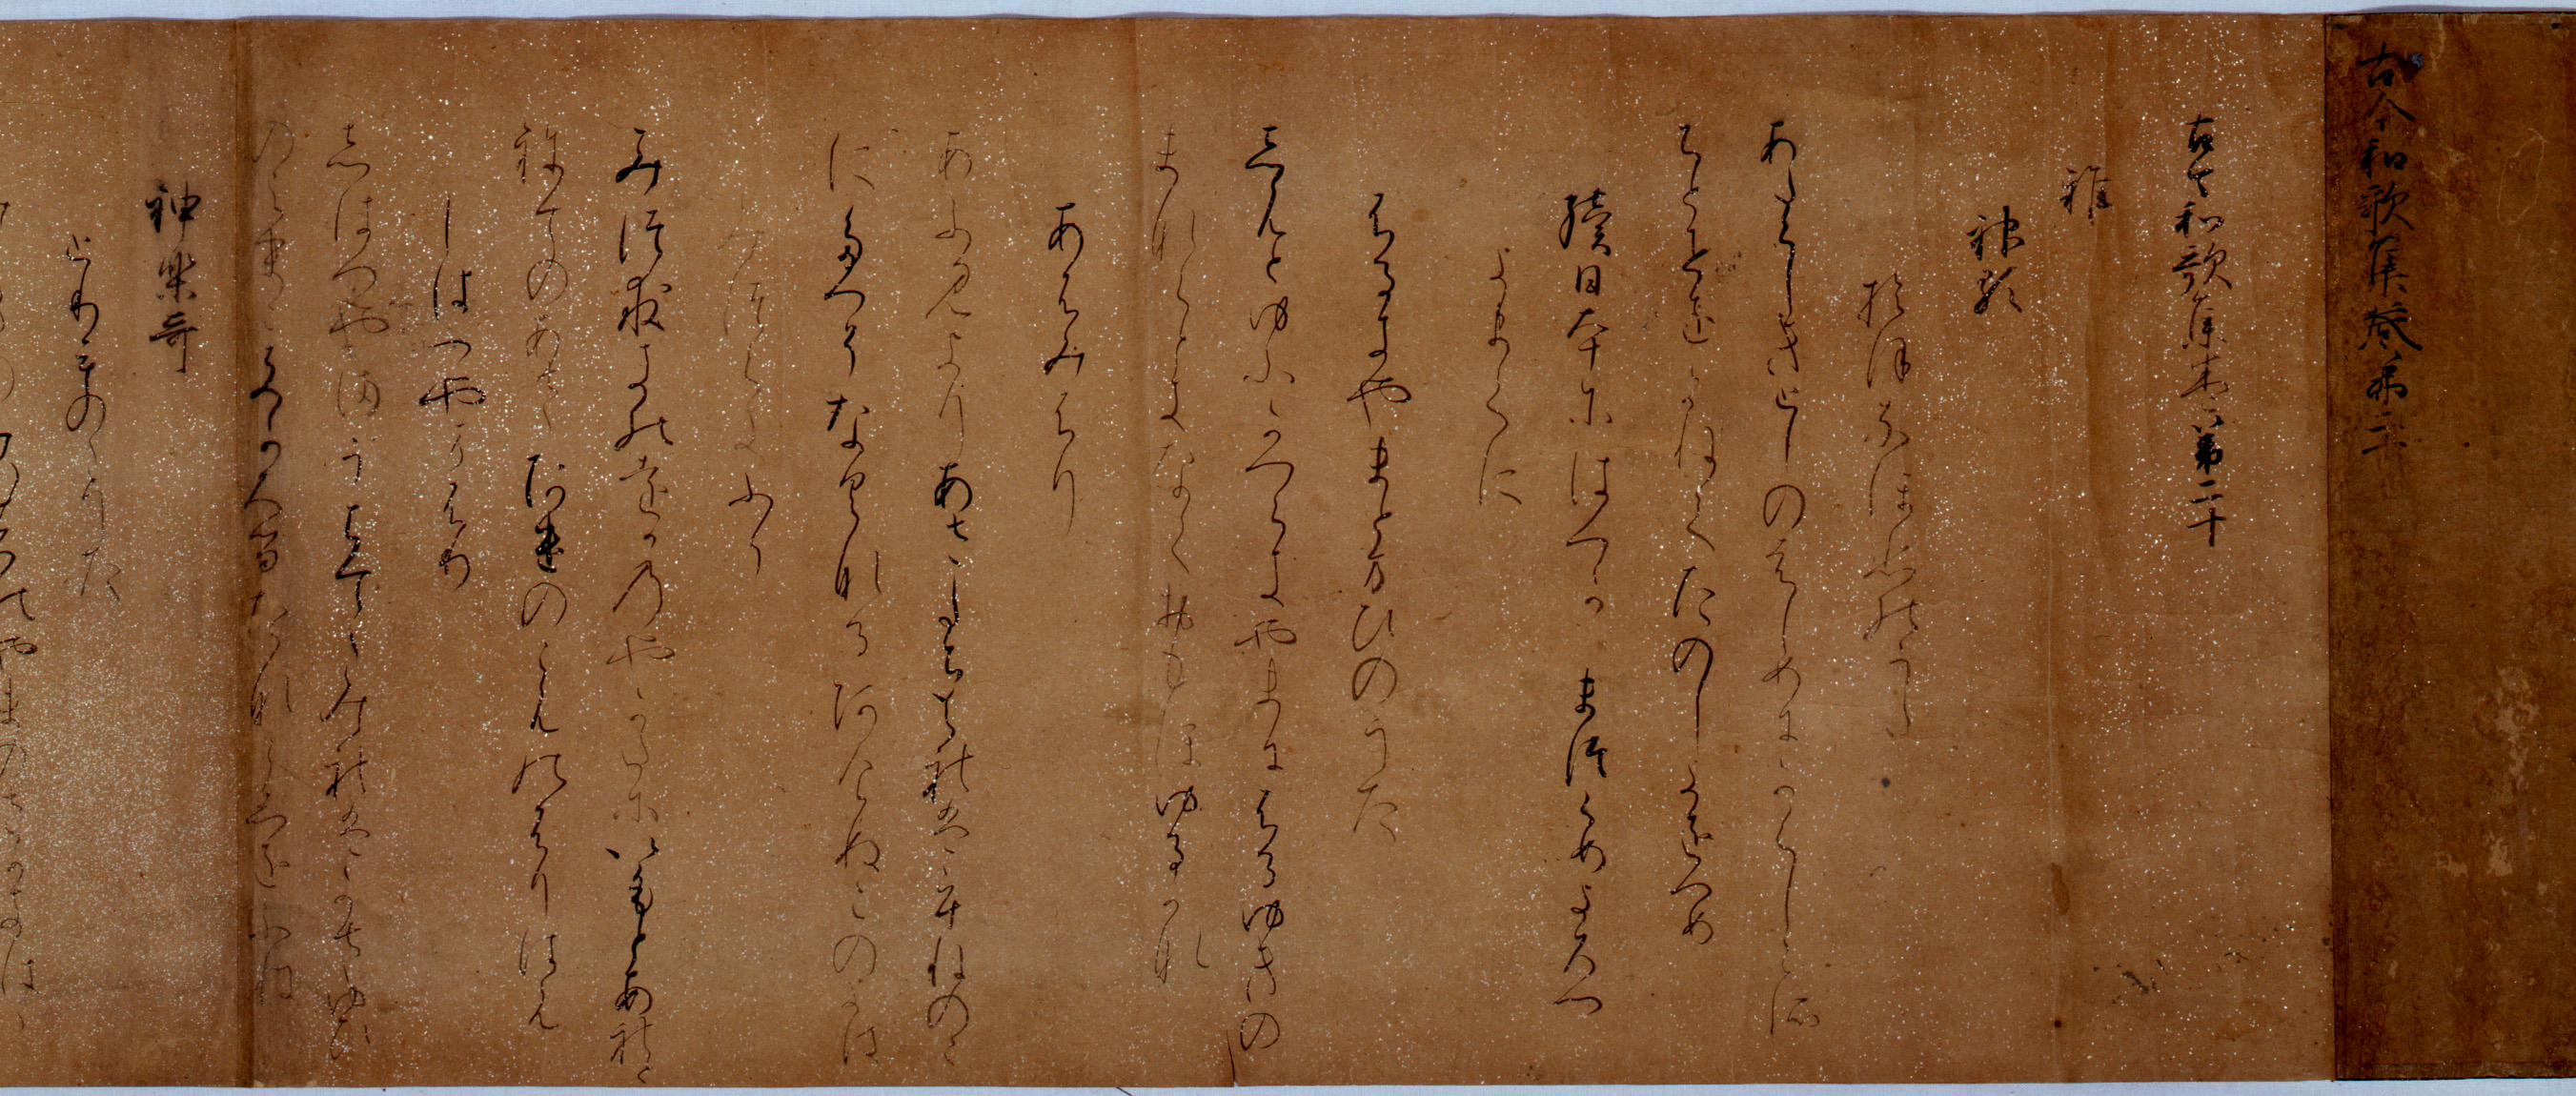 古今和歌集巻第二十
古今和歌集巻第二十
雑
神歌
於保なほ悲能うた
あたらしきとしのはしめにかくしこそ
ちとせをかねてたのしきをつめ
続日本尓はつかまつらめよろつ
よまてに
ふるきやまと万ひのうた
しもとゆふかつらきやまにふるゆきの
まなくときなくおもほゆるかな
あふみふり
あふみよりあさたちくれはうねのの
にたつそなくなるあけぬこのよは
みつくきふり
みつくきの遠かの乃やかたにいもとあれと
ねてのあさけのしものふりはも
しはつやまふり
しはつやまうちいてゝみれはかさゆひ
のしまこきかくるたなゝしをふね
神楽哥
とりものゝうた